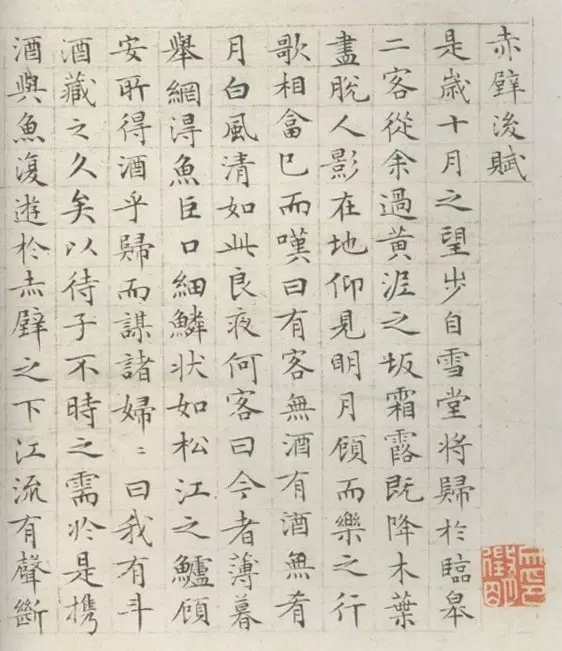 赤壁後賦
是歲十月之望步自雪堂將歸於臨皋
二客從余過黃泥之坂霜露既降木葉
盡脫人影在地仰見明月顧而樂之行
歌相畣已而嘆曰有客無酒有酒無肴
月白風清如此良夜何客曰今者薄暮
舉網得魚巨口細鱗状如松江之鱸顧
安所得酒乎歸而謀諸婦〻曰我有斗
酒藏之久矣以待子不時之需於是携
酒與魚復遊於赤壁之下江流有聲斷